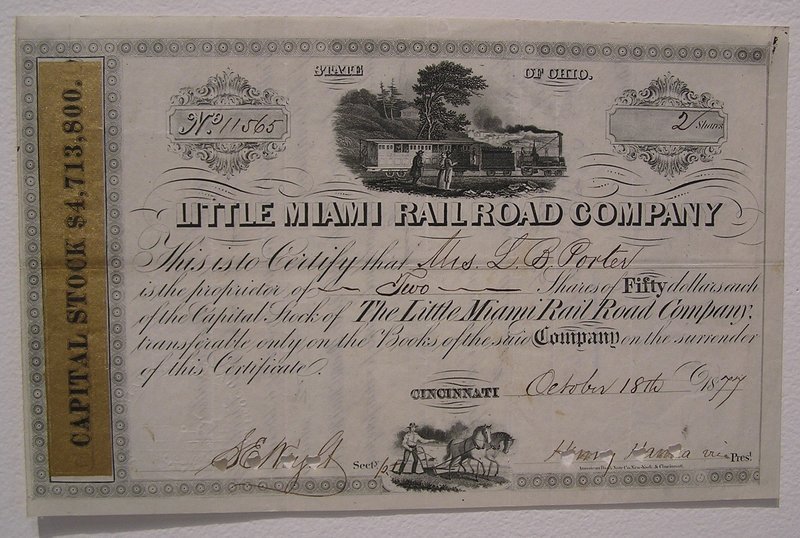 CAPITAL STOCK $4,713,800.
STATE OF OHIO.
No. 11565
2 Shares
LITTLE MIAMI RAILROAD COMPANY
This is to Certify that Mrs. L. B. Porter
is the proprietor of Two Shares of Fifty dollars each
of the Capital Stock of The Little Miami Rail Road Company,
transferable only on the Books of the said Company on the surrender
of this Certificate.
CINCINNATI October 18th 1877
S E Wright Secty.
Henry Hanna vice Prest
American Bank Note Co. New-York & Cincinnati.